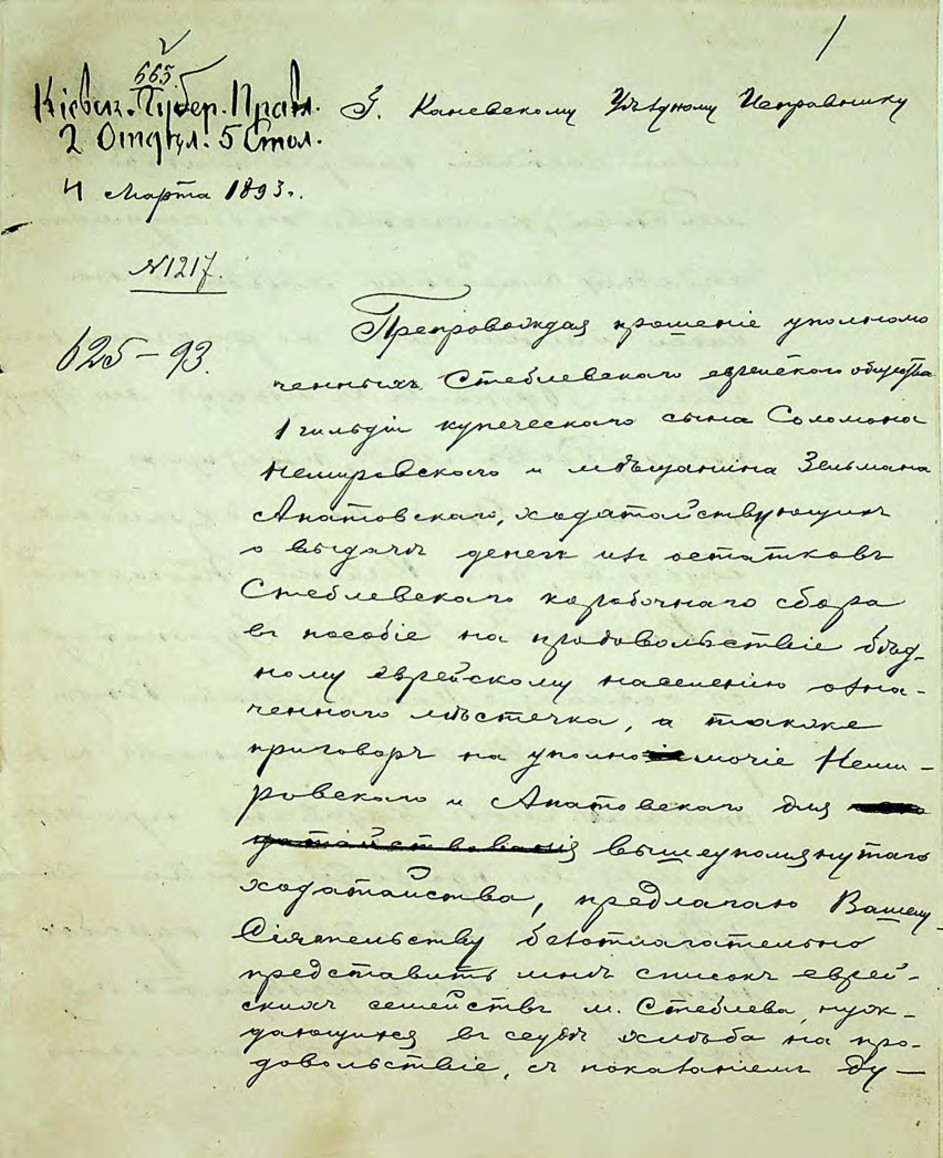 1
665.
Кіевск. Губер. Правл.
2 Отдѣл. 5 Стол.
4 Марта 1893 г.
№1217.
625–93.
Г. Каневскому Уѣздному Исправнику
Препровождая прошеніе уполномо
ченныхъ Стеблевскаго еврейскаго общества
1 гильдіи купеческаго сына Соломона
Немировскаго и мѣщанина Зельмана
Апатовскаго, ходатайствующихъ
о выдачѣ денегъ изъ остатковъ
Стеблевскаго коробочнаго сбора
въ пособіе на продовольствіе бѣд-
ному еврейскому населенію озна-
ченнаго мѣстечка, а также
приговоръ на уполномочіе Неми-
ровскаго и Апатовскаго для
вышеупомянутаго
ходатайства, предлагаю Вашему
Сіятельству безотлагательно
представить мнѣ списокъ еврей-
скихъ семействъ м. Стеблева, нуж-
дающихся въ ссудѣ хлѣба на про-
довольствіе, съ показаніемъ ду-